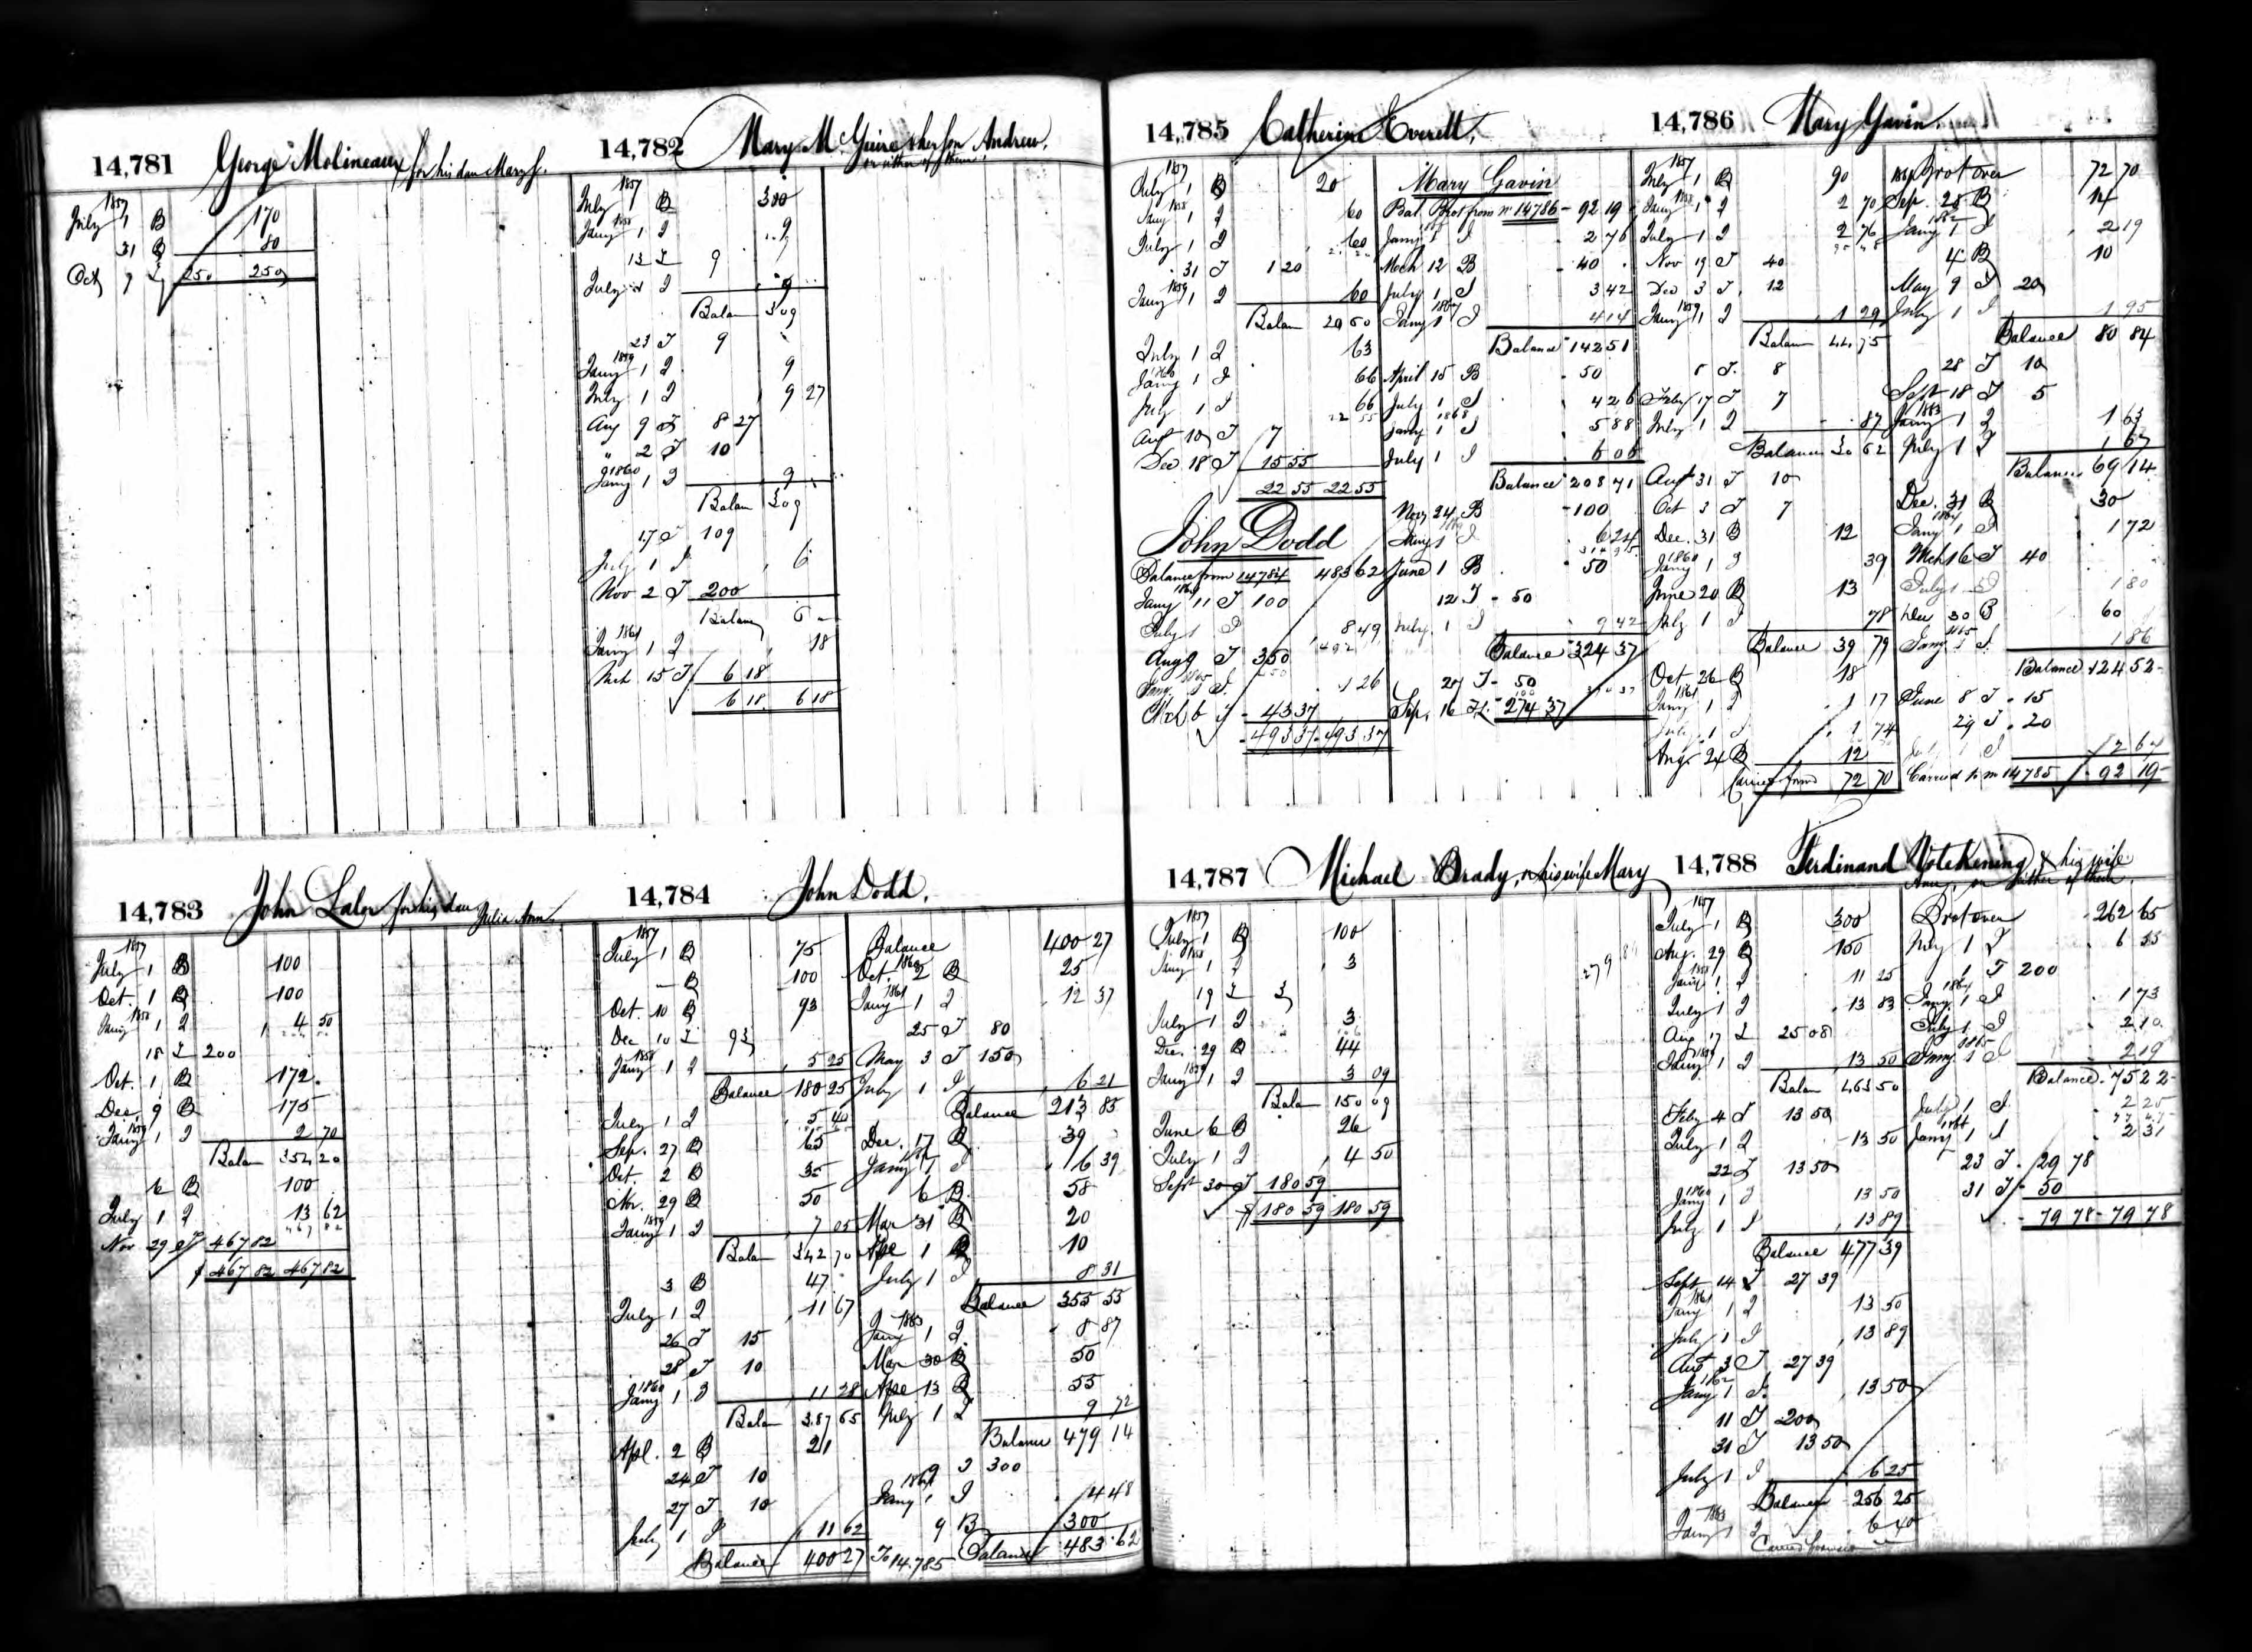 14,781 George Molineaux for his dau Mary J.
1857
July 1 B 170
31 B 80
Oct 7 I 250 250
14,782 Mary McGuire & her son Andrew,
or either of them.
1857
July 1 B 300
1858
Jany 1 I 9
13 I 9
July 1 I 9
Balan 309
23 T 9
1859
Jany 1 I 9
July 1 I 9 27
Aug 9 T 8 27
" 2 T 10
1860
Jany 1 I 9
Balan 309
17 T 109
July 1 I 6
Nov 2 T 200
Balance 6
1861
Jany 1 I 18
Mch 15 T 6 18
6 18 6 18
14,783 John Lalor for his dau Julia Ann.
1857
July 1 B 100
Oct. 1 B 100
1858
Jany 1 I 4 50
18 I 200
Oct. 1 B 172
Dec. 9 B 175
1859
Jany 1 I 2 70
Balan 354 20
6 B 100
July 1 I 13 62
467 82
Nov 29 T 467 82
$ 467 82 467 82
14,784 John Dodd.
1857
July 1 B 75
" B 100
Oct. 10 B 93
Dec 10 I 93
1858
Jany 1 I 5 25
Balance 180 25
July 1 I 5 40
Sep. 27 B 65
Oct. 2 B 35
Nov. 29 B 50
1859
Jany 1 I 7 05
Balan 342 70
3 B 47
July 1 I 11 67
26 T 15
28 T 10
1860
Jany 1 I 11 28
Balan 387 65
Apl. 2 B 21
24 T 10
27 T 10
July 1 I 11 62
Balance 400 27
Balance 400 27
1860
Oct. 2 B 25
1861
Jany 1 I 12 37
25 T 80
May 3 T 150
July 1 I 6 21
Balance 213 85
Dec. 17 B 39
1862
Jany 1 I 6 39
6 B 58
Mar 31 B 20
Ape 1 B 10
July 1 I 8 31
Balance 355 55
1863
Jany 1 I 8 87
Mar 30 B 50
Ape 13 B 55
July 1 I 9 72
Balance 479 14
9 T 300
1864
Jany 1 I 4 48
9 B 300
To 14.785 Balance 483.62
14,785 Catherine Everett,
1857
July 1 B 20
1858
Jany 1 I 60
July 1 I 60
31 T 1 20
1859
Jany 1 I 60
Balan 20 60
July 1 I 63
1860
Jany 1 I 66
July 1 I 66
22 55
Aug 10 T 7
Dec 18 T 15 55
22 55 22 55
John Dodd
Balance from 14784 483 62
1864
Jany 11 T 100
July 1 I 8 49
Aug 9 T 350
1865
Jany 1 I 1 26
Mch 6 T 43 37
493 37 493 37
Mary Gavin
Bal. Brot from No 14786 - 92 19
Jany 1 I 2 76
Mch 12 B 40
July 1 I 3 42
1867
Jany 1 I 4 14
Balance 142 51
April 15 B 50
July 1 I 4 26
1868
Jany 1 I 5 88
July 1 I 6 06
Balance 208 71
Nov 24 B 100
1869
Jany 1 I 6 24
June 1 B 50
12 T 50
July 1 I 9 42
Balance 324 37
20 T 50
Sep. 16 T 274 37
14,786 Mary Gavin
1857
July 1 B 90
1858
Jany 1 I 2 70
July 1 I 2 76
Nov 19 T 40
Dec 3 T 12
1859
Jany 1 I 1 29
Balan 44 75
5 T 8
Feby 17 T 7
July 1 I 87
Balance 30 62
Aug 31 T 10
Oct 3 T 7
Dec. 31 B 12
1860
Jany 1 I 39
June 20 B 13
July 1 I 78
Balance 39 79
Oct 26 B 18
1861
Jany 1 I 1 17
July 1 I 1 74
Aug 24 B 12
Carried forwd 72 70
1861 Brot over 72 70
Sep. 28 B 14
1862
Jany 1 I 2 19
4 B 10
May 9 T 20
July 1 I 1 95
Balance 80 84
28 T 10
Sept 18 T 5
1863
Jany 1 I 1 63
July 1 I 1 67
Balance 69 14
Dec. 31 B 30
1864
Jany 1 I 1 72
Mch 16 T 40
July 1 I 1 80
Dec 30 B 60
1865
Jany 1 I 1 86
Balance 124 52
June 8 T 15
29 T 20
July 1 I 2 67
Carried to No 14785 92 19
14,787 Michael Brady, or his wife Mary
1857
July 1 B 100
1858
Jany 1 I 3
19 I 3
July 1 I 3
Dec. 29 B 44
1859
Jany 1 I 3 09
Balan 150 09
June 6 B 26
July 1 I 4 50
Sept 30 T 180 59
$ 180 59 180 59
14,788 Ferdinand Votekening & his wife
Ann, or either of them.
1857
July 1 B 300
Aug. 29 B 150
1858
Jany 1 I 11 25
July 1 I 13 83
Aug 17 I 25 08
1859
Jany 1 I 13 50
Balan 463 50
Feby 4 T 13 50
July 1 I 13 50
22 T 13 50
1860
Jany 1 I 13 50
July 1 I 13 89
Balance 477 39
Sept 14 T 27 39
1861
Jany 1 I 13 50
July 1 I 13 89
Aug 3 T 27 39
1862
Jany 1 I 13 50
11 T 200
31 T 13 50
July 1 I 6 25
Balance 256 25
1863
Jany 1 I 6 40
Carried forward
Brot over 262 65
July 1 I 6 55
1 T 200
1864
Jany 1 I 1 73
July 1 I 2 10
1865
Jany 1 I 2 19
Balance 75 22
July 1 I 2 25
1866
Jany 1 I 2 31
23 T 29 78
31 T 50
79 78 79 78